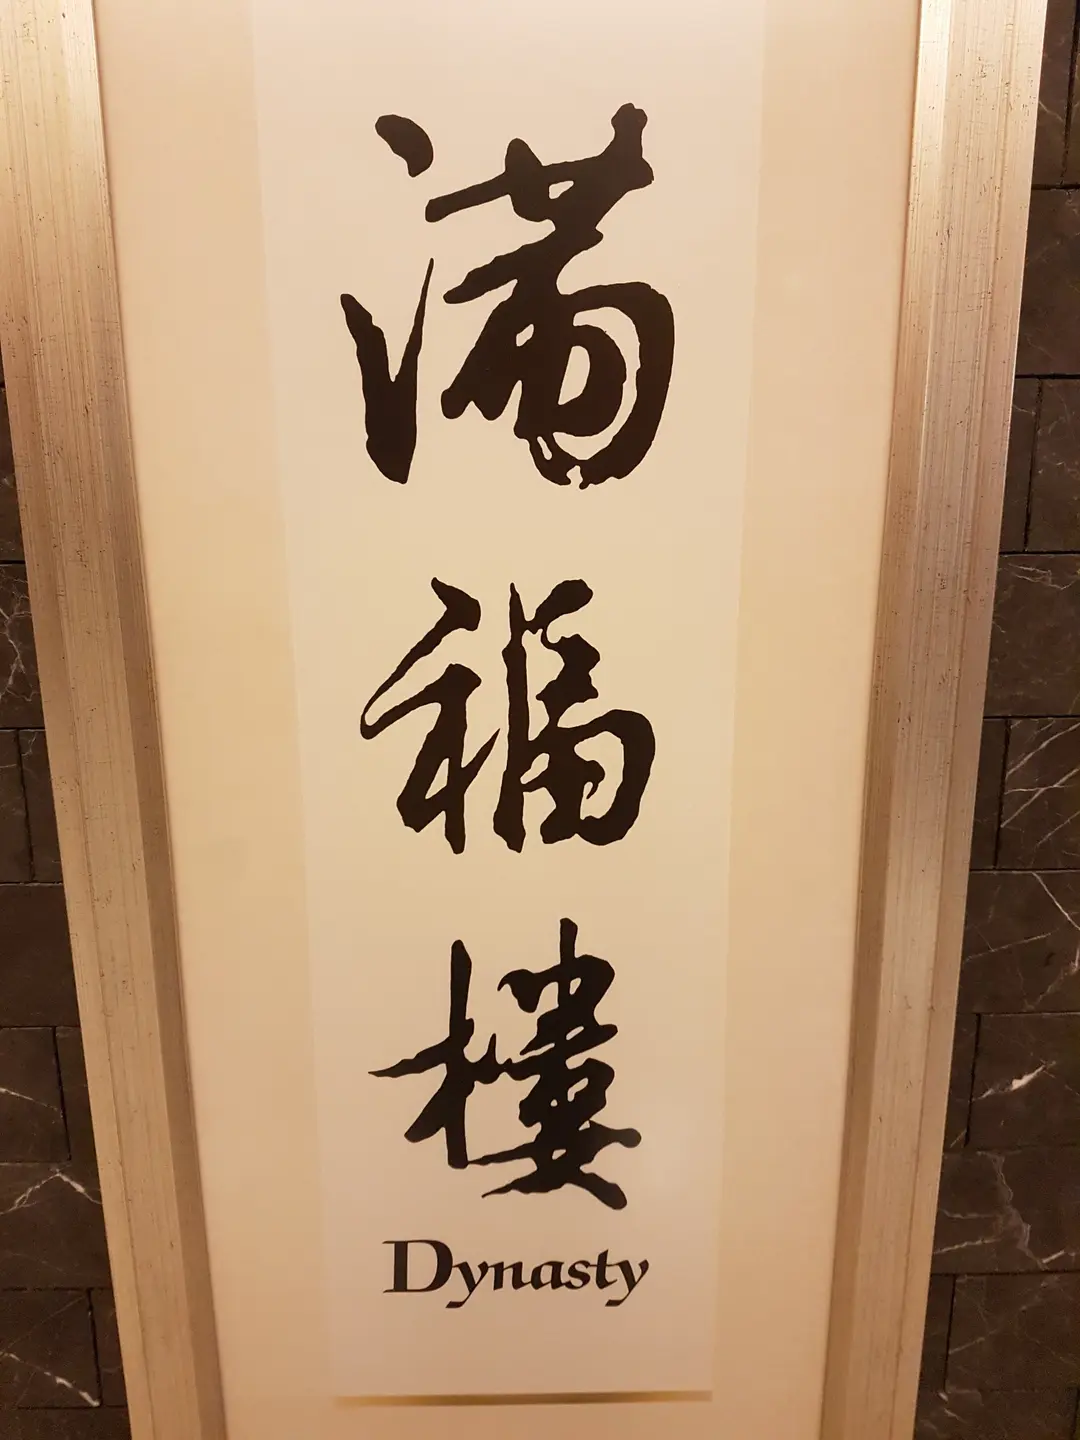 满福樓
Dynasty